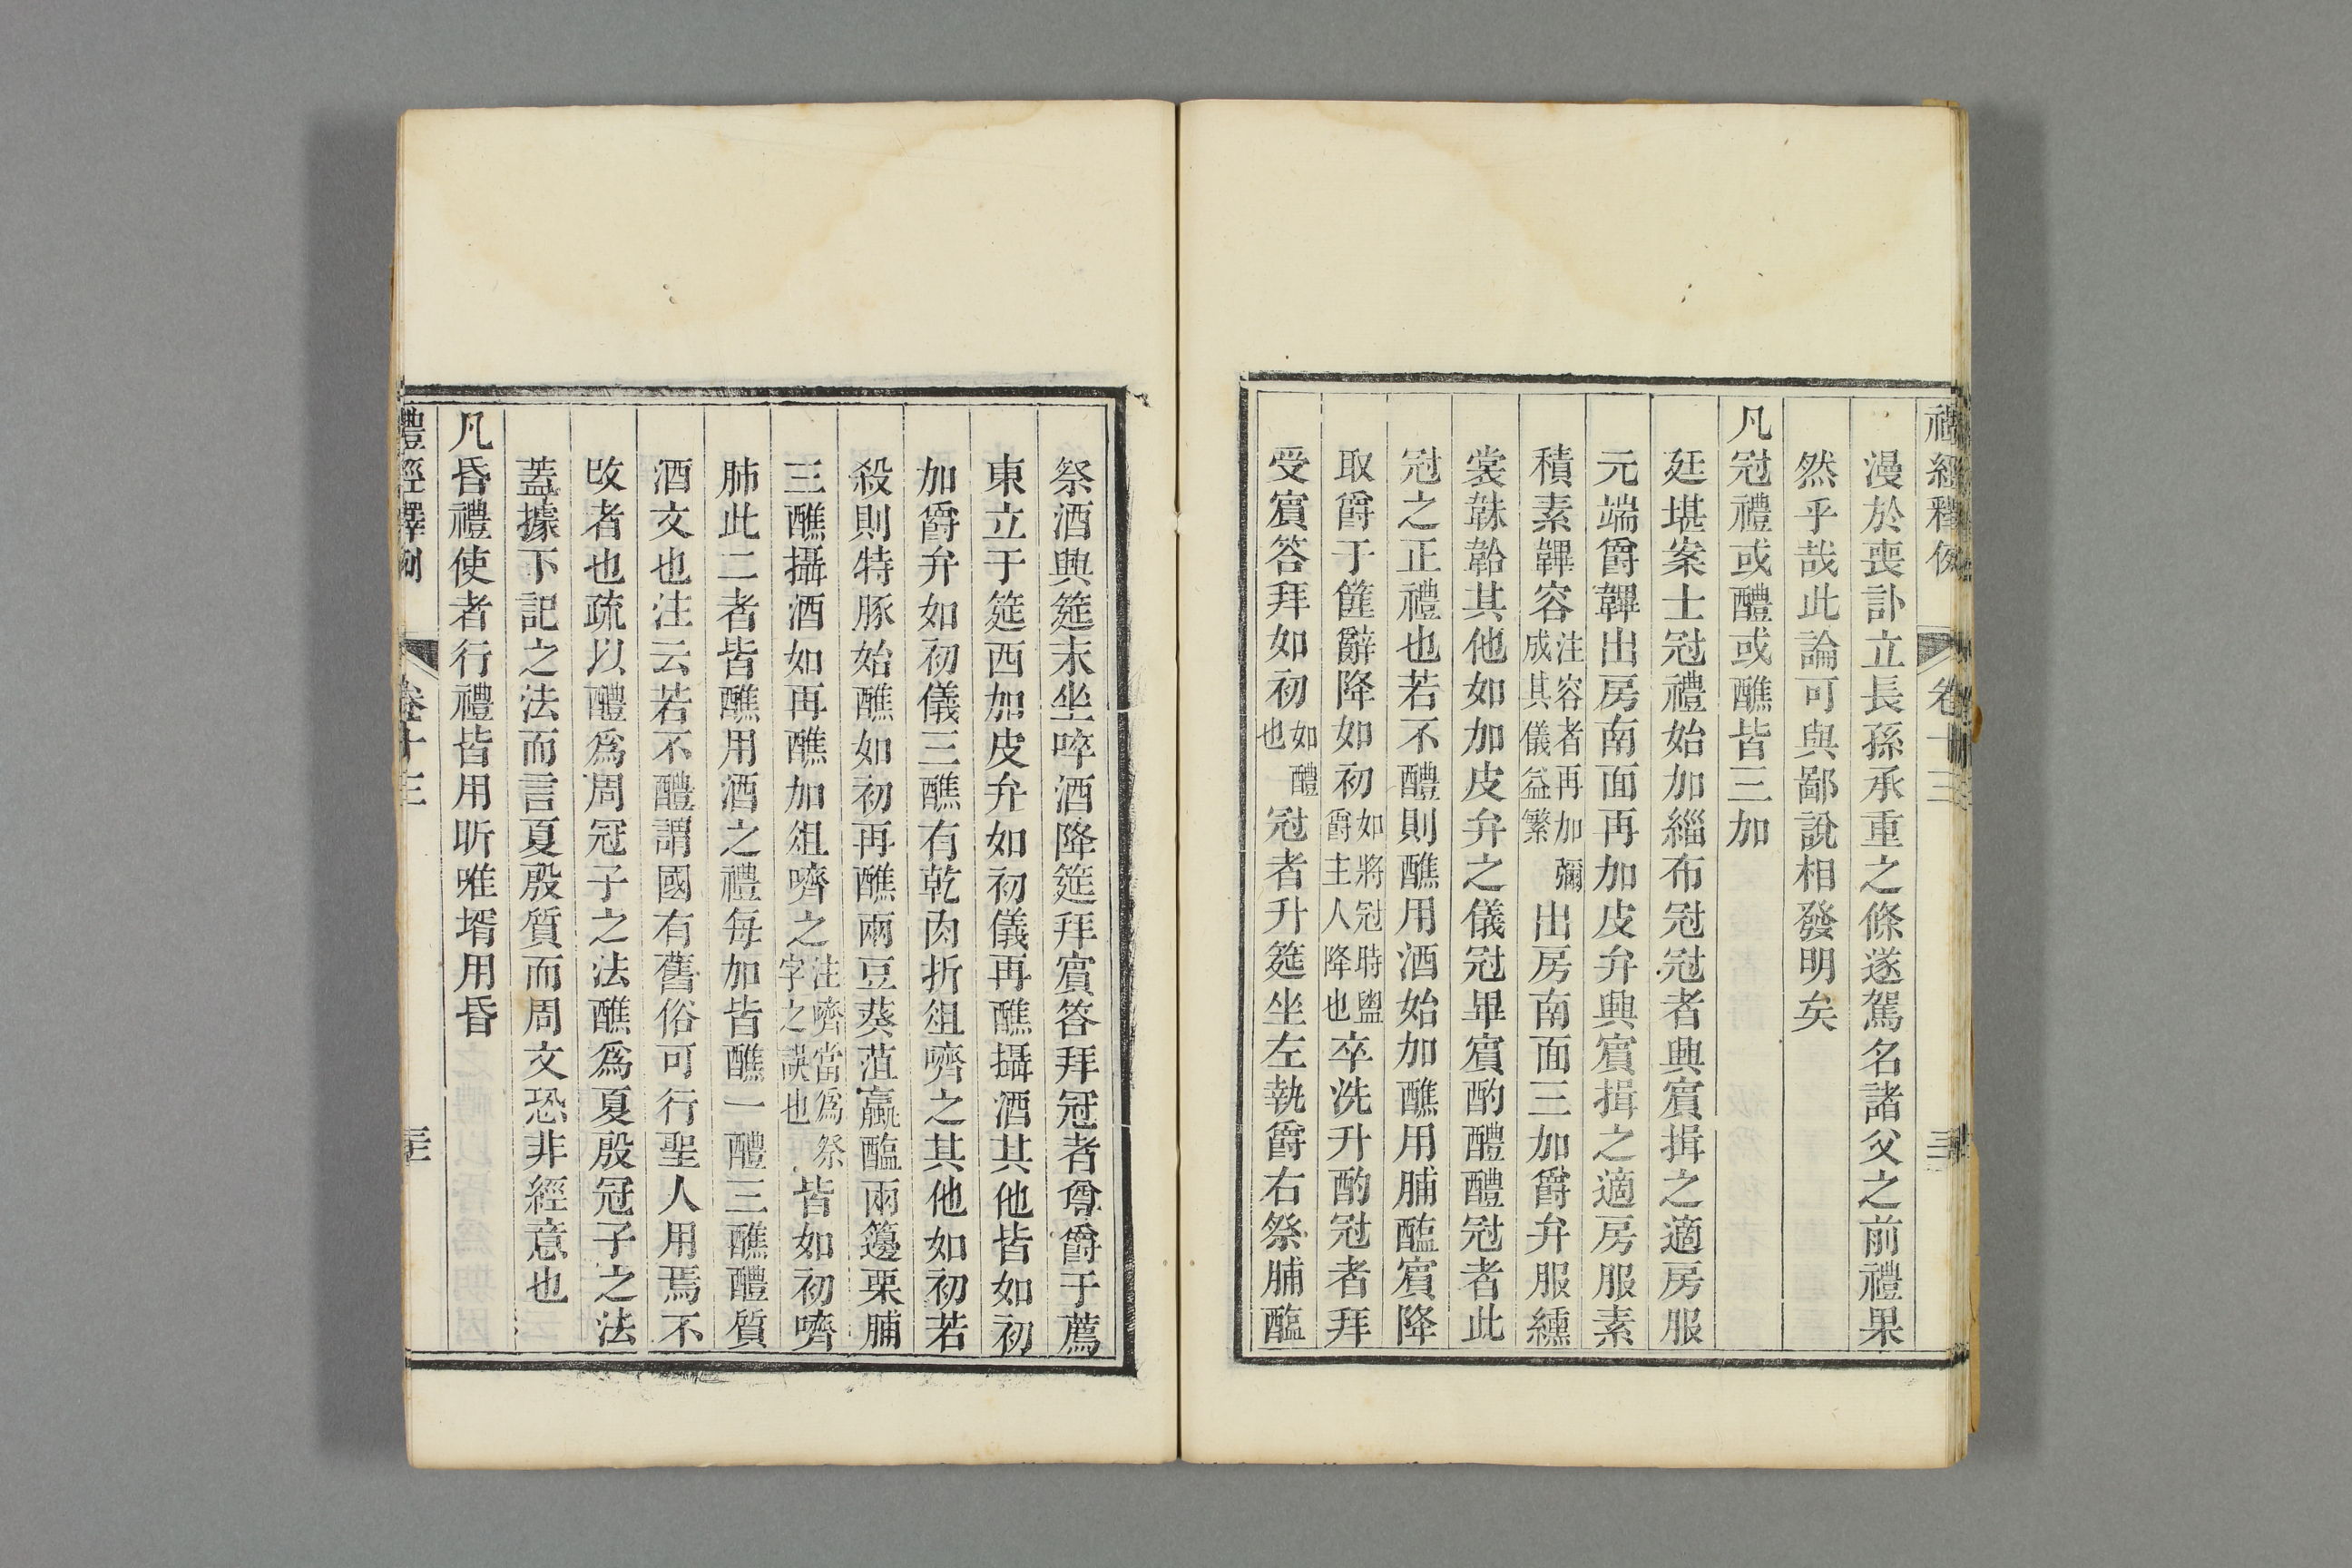 禮經釋例 卷十三
漫於喪訃立長孫承重之條遂駕名諸父之前禮果
然乎哉此論可與鄙說相發明矣
凡冠禮或醴或醮皆三加
廷堪案士冠禮始加緇布冠冠者興賓揖之適房服
元端爵韠出房南面再加皮弁興賓揖之適房服素
積素韠容注容者再加彌成其儀益繁出房南面三加爵弁服纁
裳韎韐其他如加皮弁之儀冠畢賓酌醴醴冠者此
冠之正禮也若不醴則醮用酒始加醮用脯醢賓降
取爵于篚辭降如初如將冠時盥爵主人降也卒洗升酌冠者拜
受賓答拜如初如醴也冠者升筵坐左執爵右祭脯醢
祭酒興筵末坐啐酒降筵拜賓答拜冠者奠爵于薦
東立于筵西加皮弁如初儀再醮攝酒其他皆如初
加爵弁如初儀三醮有乾肉折俎嚌之其他如初若
殺則特豚始醮如初再醮兩豆葵菹蠃醢兩籩栗脯
三醮攝酒如再醮加俎嚌之注嚌當爲祭字之誤也皆如初嚌
肺此二者皆醮用酒之禮每加皆醮一醴三醮醴質
酒文也注云若不醴謂國有舊俗可行聖人用焉不
改者也疏以醴爲周冠子之法醮爲夏殷冠子之法
蓋據下記之法而言夏殷質而周文恐非經意也
凡昏禮使者行禮皆用昕唯壻用昏
禮經釋例 卷十三